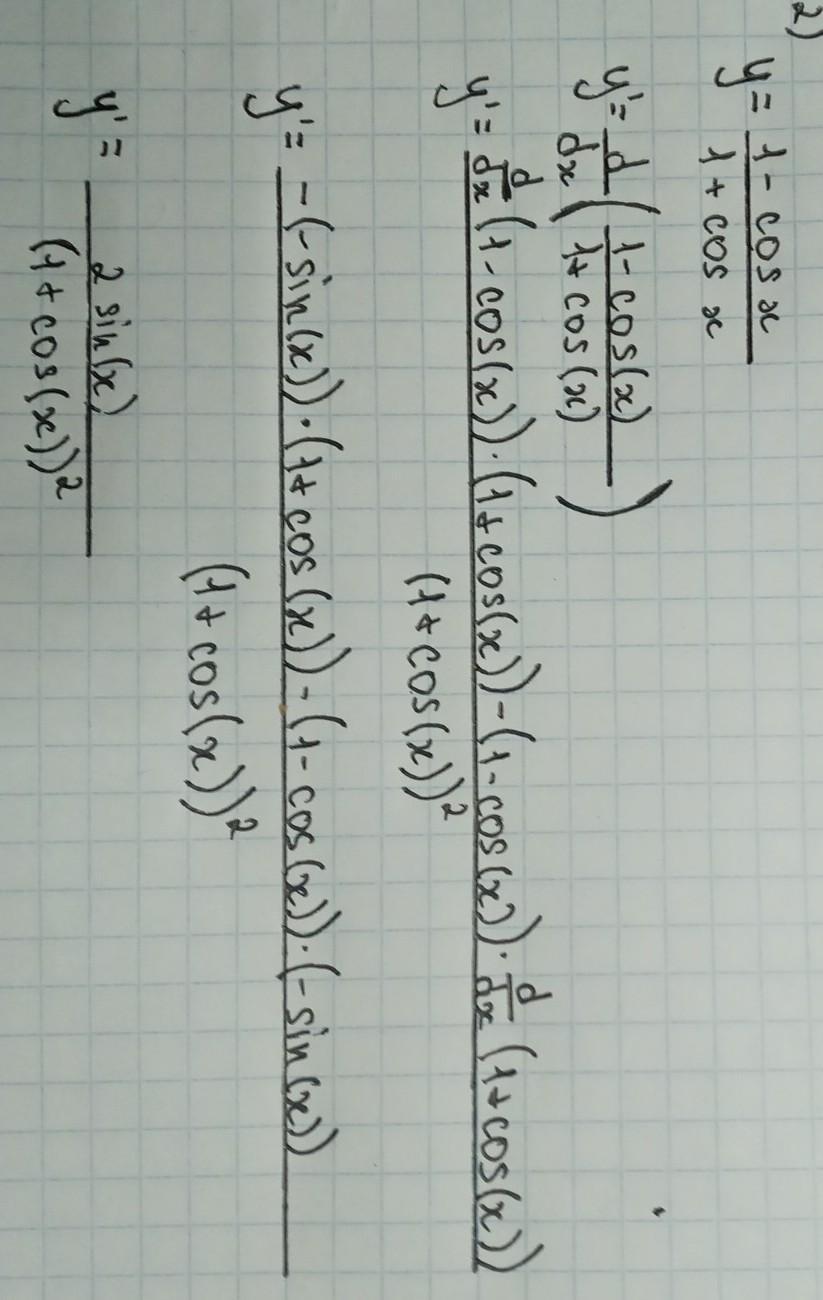 2)
y = \frac{1 - cos x}{1 + cos x}
y' = \frac{d}{dx} ( \frac{1 - cos(x)}{1 + cos(x)} )
y' = \frac{\frac{d}{dx} (1 - cos(x)) · (1 + cos(x)) - (1 - cos(x)) · \frac{d}{dx} (1 + cos(x))}{(1 + cos(x))^2}
y' = \frac{-(-sin(x)) · (1 + cos(x)) - (1 - cos(x)) · (-sin(x))}{(1 + cos(x))^2}
y' = \frac{2 sin(x)}{(1 + cos(x))^2}